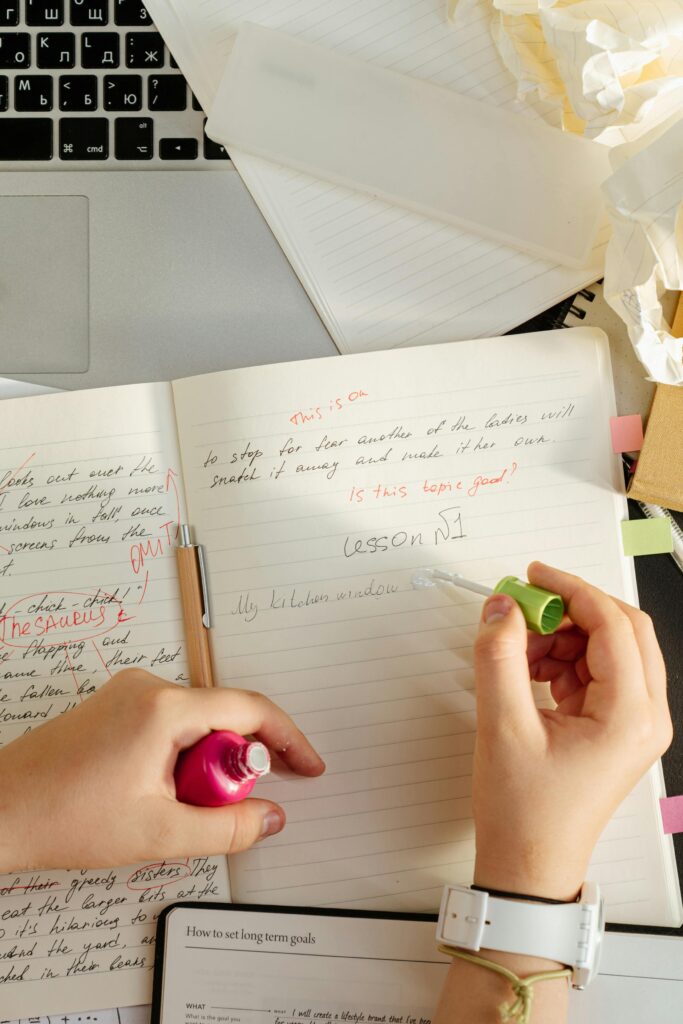 Ш Щ З
О Л Д Ж
М < Б > Ю ?
⌘ cmd alt
looks out over the
I love nothing more
windows in fall, once
screens from the
OMIT
chick-chick!"
Thesaurus
flapping and
same time, their feet
fallen
toward the
of their greedy sisters. They
eat the larger bits at the
it's hilarious to
the yard,
in their beaks,
This is on
to stop for fear another of the ladies will
snatch it away and make it her own.
Is this topic good?
Lesson №1
My kitchen window
How to set long term goals
WHAT I will create a lifestyle brand that I've
What is the goal you